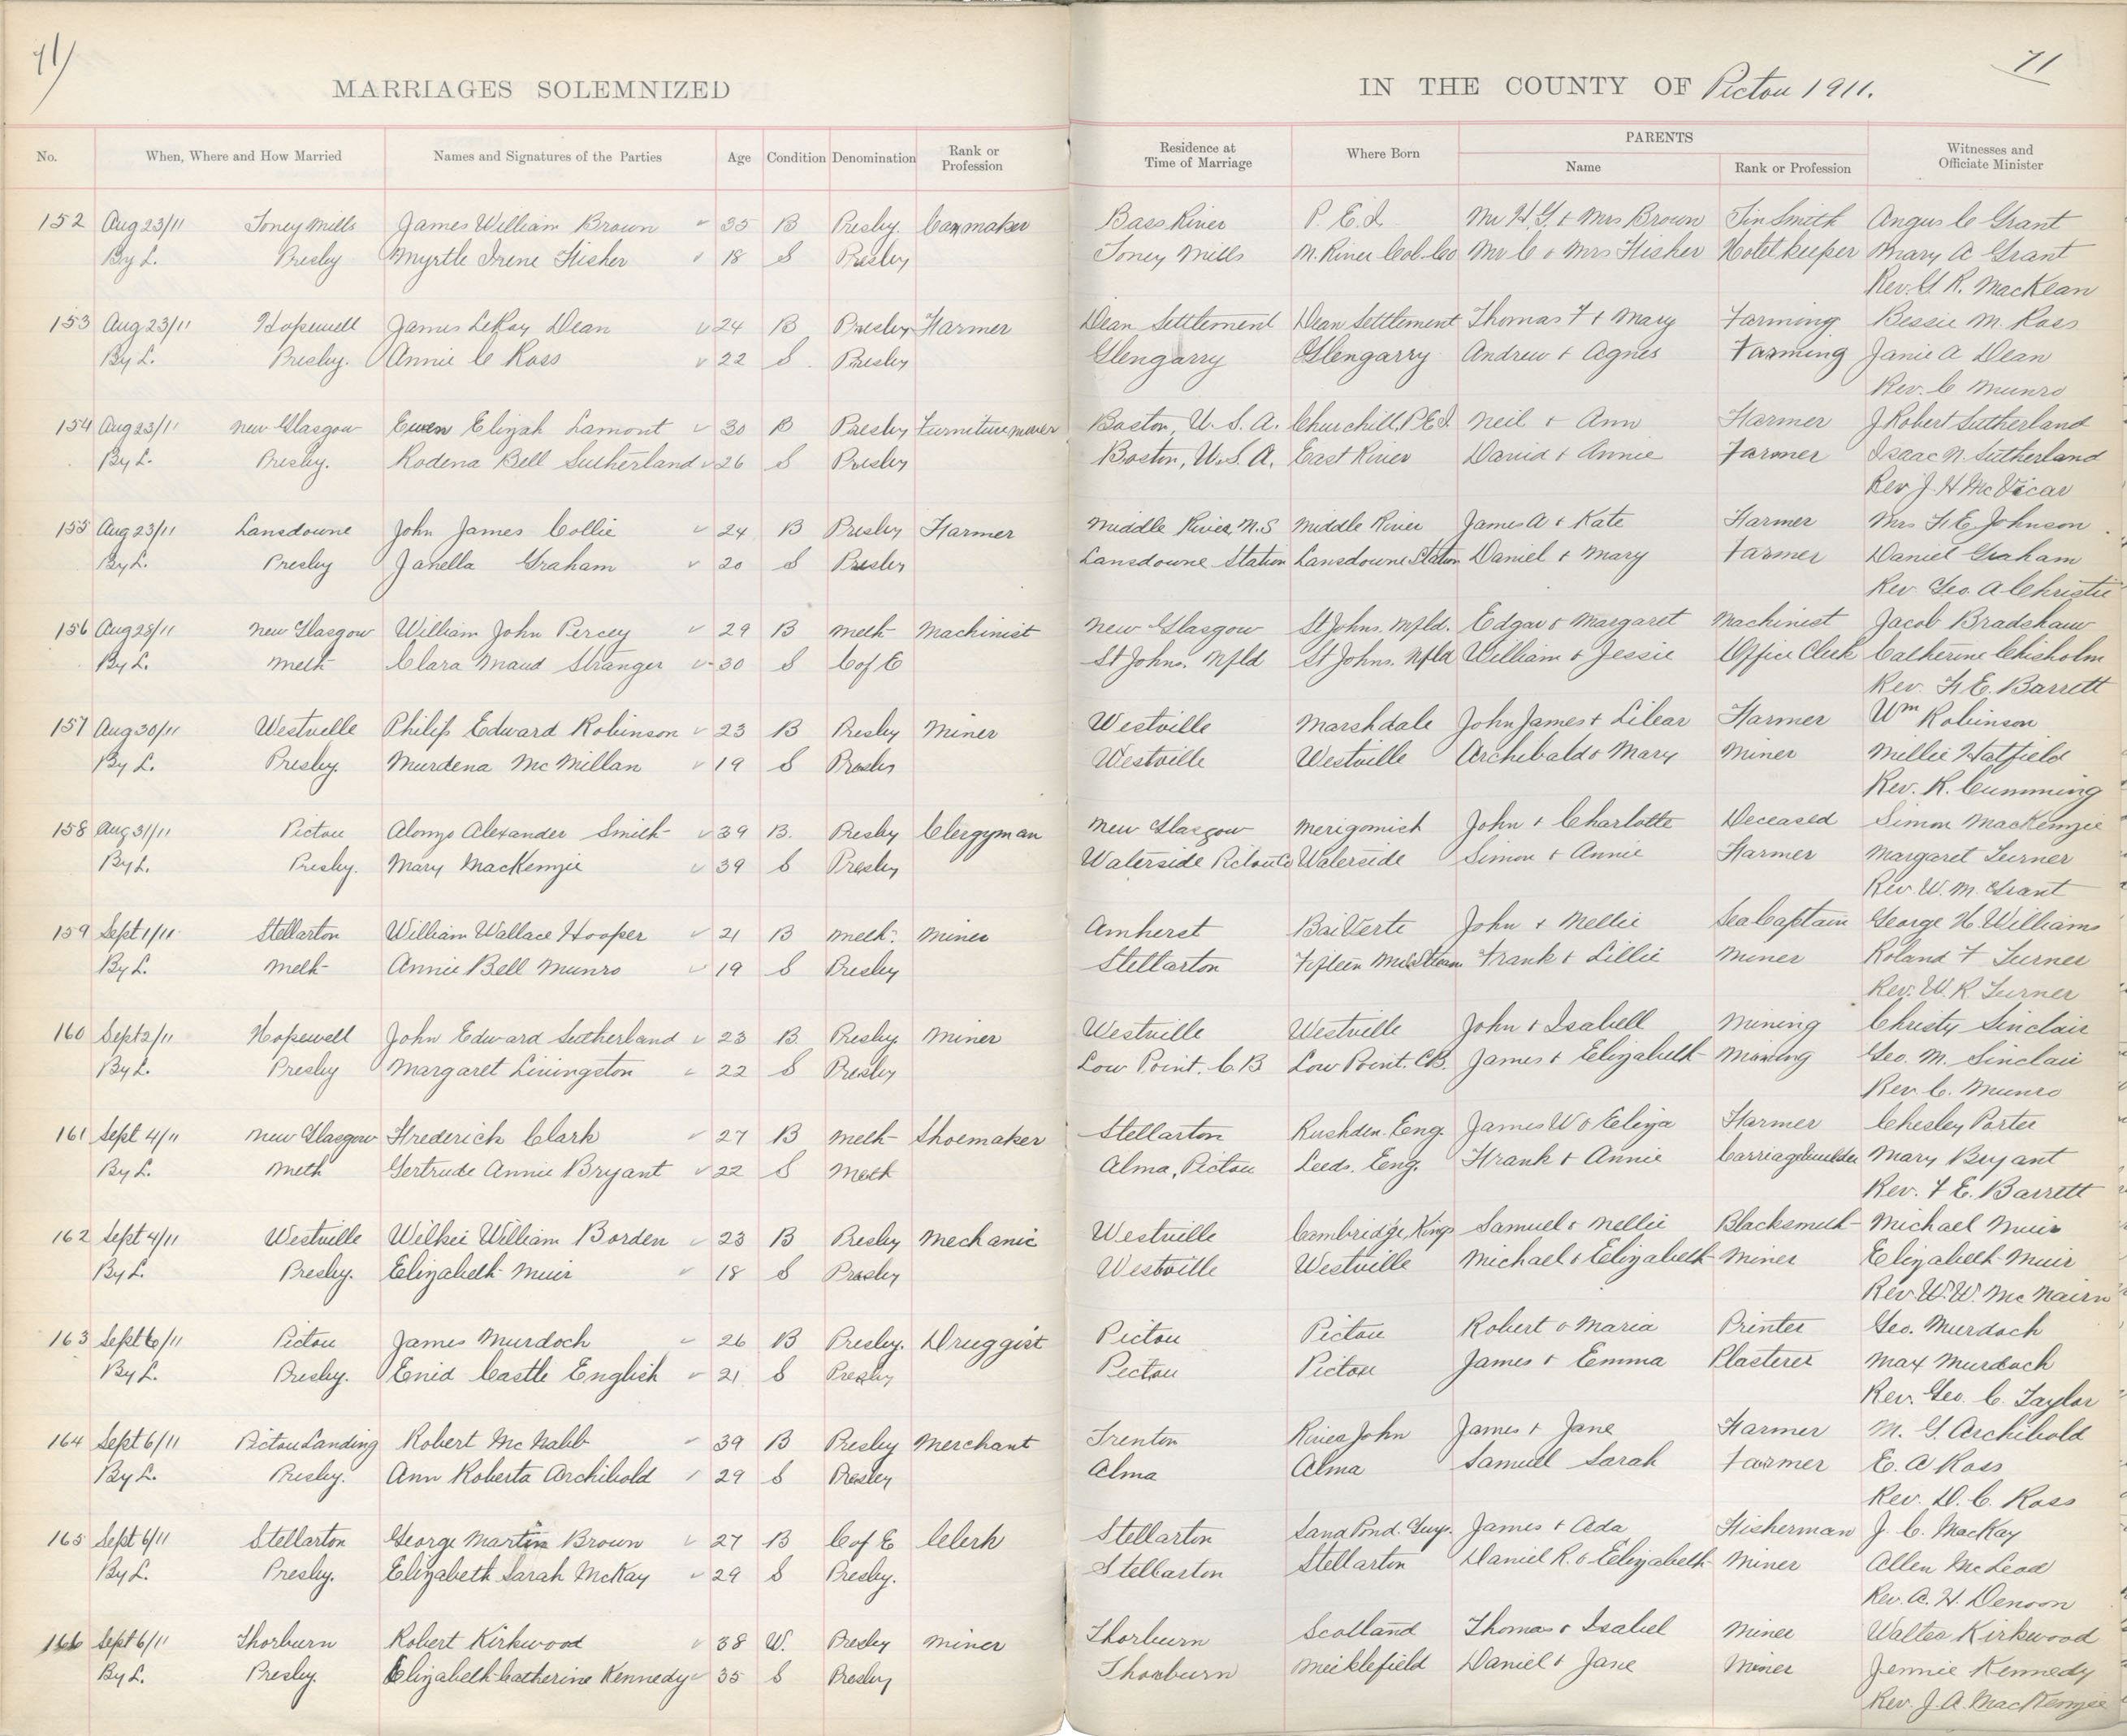 71
71
MARRIAGES SOLEMNIZED IN THE COUNTY OF Pictou 1911.
No. When, Where and How Married Names and Signatures of the Parties Age Condition Denomination Rank or Profession Residence at Time of Marriage Where Born PARENTS Name Rank or Profession Witnesses and Officiate Minister
152 Aug 23/11 Toney Mills James William Brown 35 B Presby. Bass River P. E. I. Mr H.G. + Mrs Brown Tin Smith Angus C Grant
By L. Presby Myrtle Irene Fisher 18 S Presby Toney Mills M. River Col. Co Mr C + Mrs Fisher Hotel Keeper Mary A Grant
Rev. G. R. MacKean
153 Aug 23/11 Hopewell James LeRoy Dean 24 B Presby Farmer Dean Settlement Dean Settlement Thomas F + Mary Farming Bessie M. Ross
By L. Presby. Annie C Ross 22 S Presby Glengarry Glengarry Andrew + Agnes Farming Janie A Dean
Rev. C Munro
154 Aug 23/11 New Glasgow Ewen Elijah Lamont 30 B Presby Furniture mover Boston, U. S. A. Churchill, P.E.I Neil + Ann Farmer J Robert Sutherland
By L. Presby. Rodena Bell Sutherland 26 S Presby Boston, U.S. A. East River David + Annie Farmer Isaac N. Sutherland
Rev J. H McVicar
155 Aug 23/11 Lansdowne John James Collie 24 B Presby Farmer Middle River, N.S Middle River James A + Kate Farmer Mrs F. E. Johnson
By L. Presby Janella Graham 20 S Presby Lansdowne Station Lansdowne Station Daniel + Mary Farmer Daniel Graham
Rev Geo. A Christie
156 Aug 28/11 New Glasgow William John Percey 29 B Meth Machinist New Glasgow St Johns. Nfld. Edgar + Margaret Machinist Jacob Bradshaw
By L. Meth Clara Maud Stranger 30 S C of E St Johns. Nfld St Johns. Nfld William + Jessie Office Clerk Catherine Chisholm
Rev. F. E. Barrett
157 Aug 30/11 Westville Philip Edward Robinson 23 B Presby Miner Westville Marshdale John James + Lilear Farmer Wm Robinson
By L. Presby. Murdena McMillan 19 S Presby Westville Westville Archibald + Mary Miner Millie Hatfield
Rev. R. Cumming
158 Aug 31/11 Pictou Alonzo Alexander Smith 39 B. Presby Clergyman New Glasgow Merigomish John + Charlotte Deceased Simon MacKenzie
By L. Presby. Mary MacKenzie 39 S Presby Waterside Pictou Co Waterside Simon + Annie Farmer Margaret Turner
Rev. W. M. Grant
159 Sept 1/11 Stellarton William Wallace Hooper 21 B Meth. Miner Amherst Bai Verte John + Nellie Sea Captain George H. Williams
By L. Meth Annie Bell Munro 19 S Presby Stellarton Fifteen Mile Stream Frank + Lillie Miner Roland F Turner
Rev. W. R Turner
160 Sept 2/11 Hopewell John Edward Sutherland 23 B Presby Miner Westville Westville John + Isabell Mining Christy Sinclair
By L. Presby Margaret Livingston 22 S Presby Low Point. C. B Low Point. C.B. James + Elizabeth Mining Geo. M. Sinclair
Rev C. Munro
161 Sept 4/11 New Glasgow Frederick Clark 27 B Meth Shoemaker Stellarton Rushden. Eng. James W + Eliza Farmer Chesley Porter
By L. Meth Gertrude Annie Bryant 22 S Meth Alma, Pictou Leeds. Eng. Frank + Annie Carriagebuilder Mary Bryant
Rev. F E. Barrett
162 Sept 4/11 Westville Wilkie William Borden 23 B Presby Mechanic Westville Cambridge, Kings Samuel + Nellie Blacksmith Michael Muir
By L. Presby. Elizabeth Muir 18 S Presby Westville Westville Michael + Elizabeth Miner Elizabeth Muir
Rev W. W. McNairn
163 Sept 6/11 Pictou James Murdoch 26 B Presby. Druggist Pictou Pictou Robert + Maria Printer Geo. Murdoch
By L. Presby. Enid Castle English 21 S Presby Pictou Pictou James + Emma Plasterer Max Murdoch
Rev. Geo. C. Taylor
164 Sept 6/11 Pictou Landing Robert McNabb 39 B Presby Merchant Trenton River John James + Jane Farmer M. G. Archibold
By L. Presby. Ann Roberta Archibold 29 S Presby Alma Alma Samuel Sarah Farmer E. A Ross
Rev. D. C. Ross
165 Sept 6/11 Stellarton George Martin Brown 27 B C of E Clerk Stellarton Sand Pond. Guys. James + Ada Fisherman J. C. MacKay
By L. Presby. Elizabeth Sarah McKay 29 S Presby. Stellarton Stellarton Daniel R. + Elizabeth Miner Allen McLeod
Rev. A. H. Denoon
166 Sept 6/11 Thorburn Robert Kirkwood 38 W. Presby Miner Thorburn Scotland Thomas + Isabel Miner Walter Kirkwood
By L. Presby. Elizabeth Catherine Kennedy 35 S Presby Thorburn Meiklefield Daniel + Jane Miner Jennie Kennedy
Rev. J. A. MacKenzie